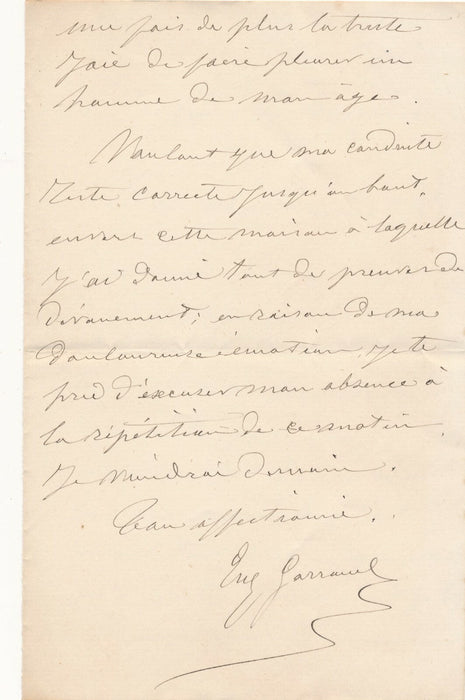 une fois de plus la triste
joie de faire pleurer un
homme de mon âge.
Voulant que ma conduite
reste correcte jusqu'au bout,
envers cette maison à laquelle
j'ai donné tant de preuves de
dévouement; en raison de ma
douloureuse émotion, je te
prie d'excuser mon absence à
la répétition de ce matin.
Je viendrai demain.
Ton affectionné.
Eug Garraud